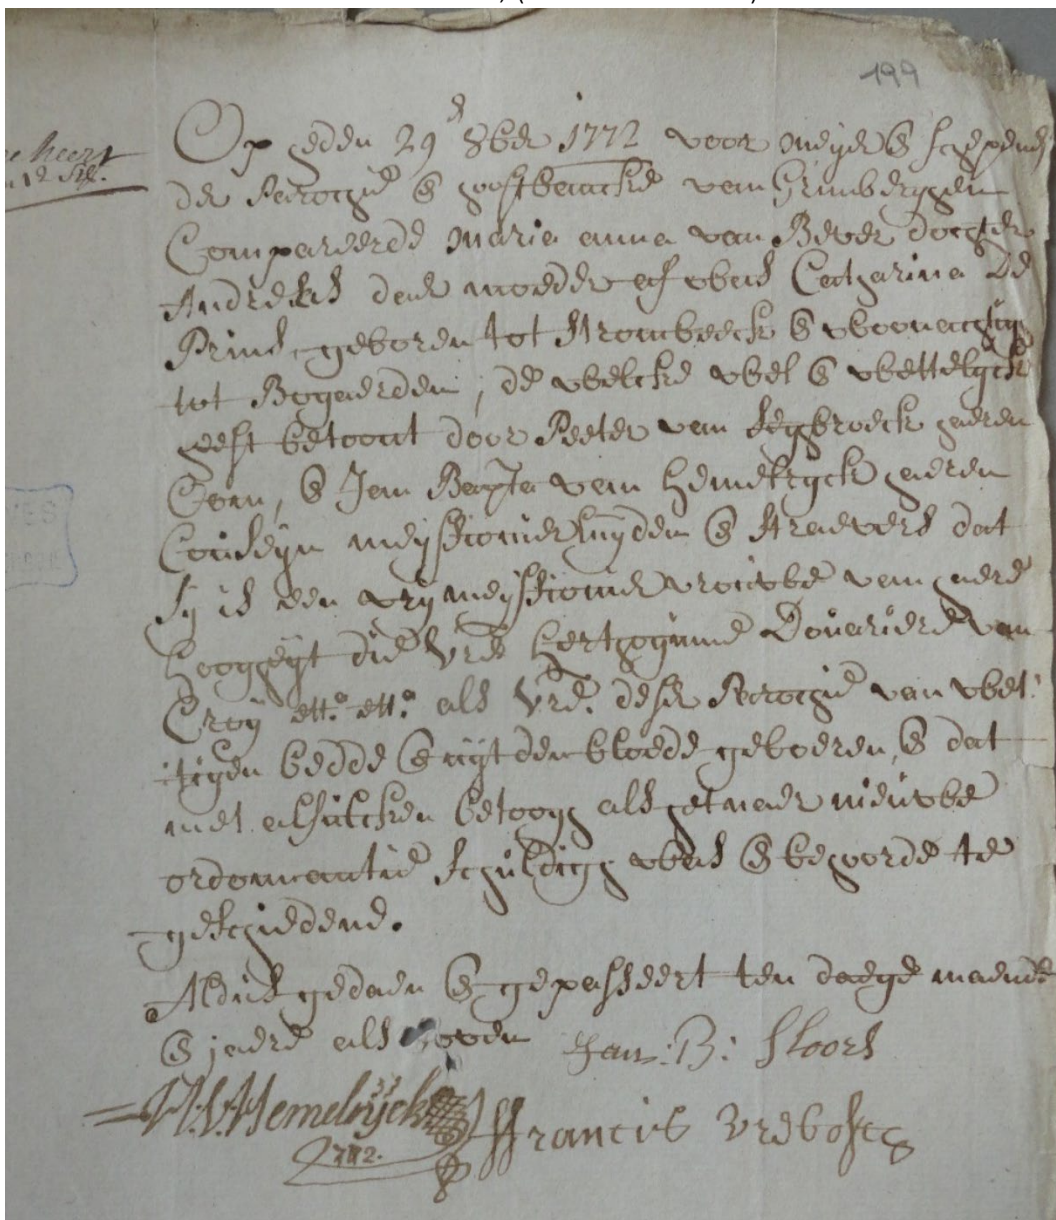 199
Op heden 29 8ber 1772 voor meyer & schepenen
der Parochie & hooftbancke van Grimberghen
Compareerde Maria anna van Bever dochter
Andreas daer moeder af was Catharina De
Prins geboren tot Strombeeck & woonachtig
tot Bogaerden, de welcke wel & wettelyck
heeft bethoont door Peeter van Segbroeck haeren
Oom, & Jan Bapta van Hemelryck haeren
Couseyn meysseniersluyden & Straevers dat
sy is een vry meysseniers vrouwe van haere
hoogheyt die vrē Hertoginne Douariere van
Croy ett.a ett.a als vrē. deser Parochie van wet:
:tigen bedde & uyt den bloede geboeren, & dat
met alsulcken betoogh als het naer nieuwe
ordonnantie schuldigh was & behoorde te
geschiedene.
Aldus gedaen & gepasseert ten daege maende
& jaere als boven Jan: B: Sloors
H.V.Hemelrÿck
1772. ffrancis Verbosch